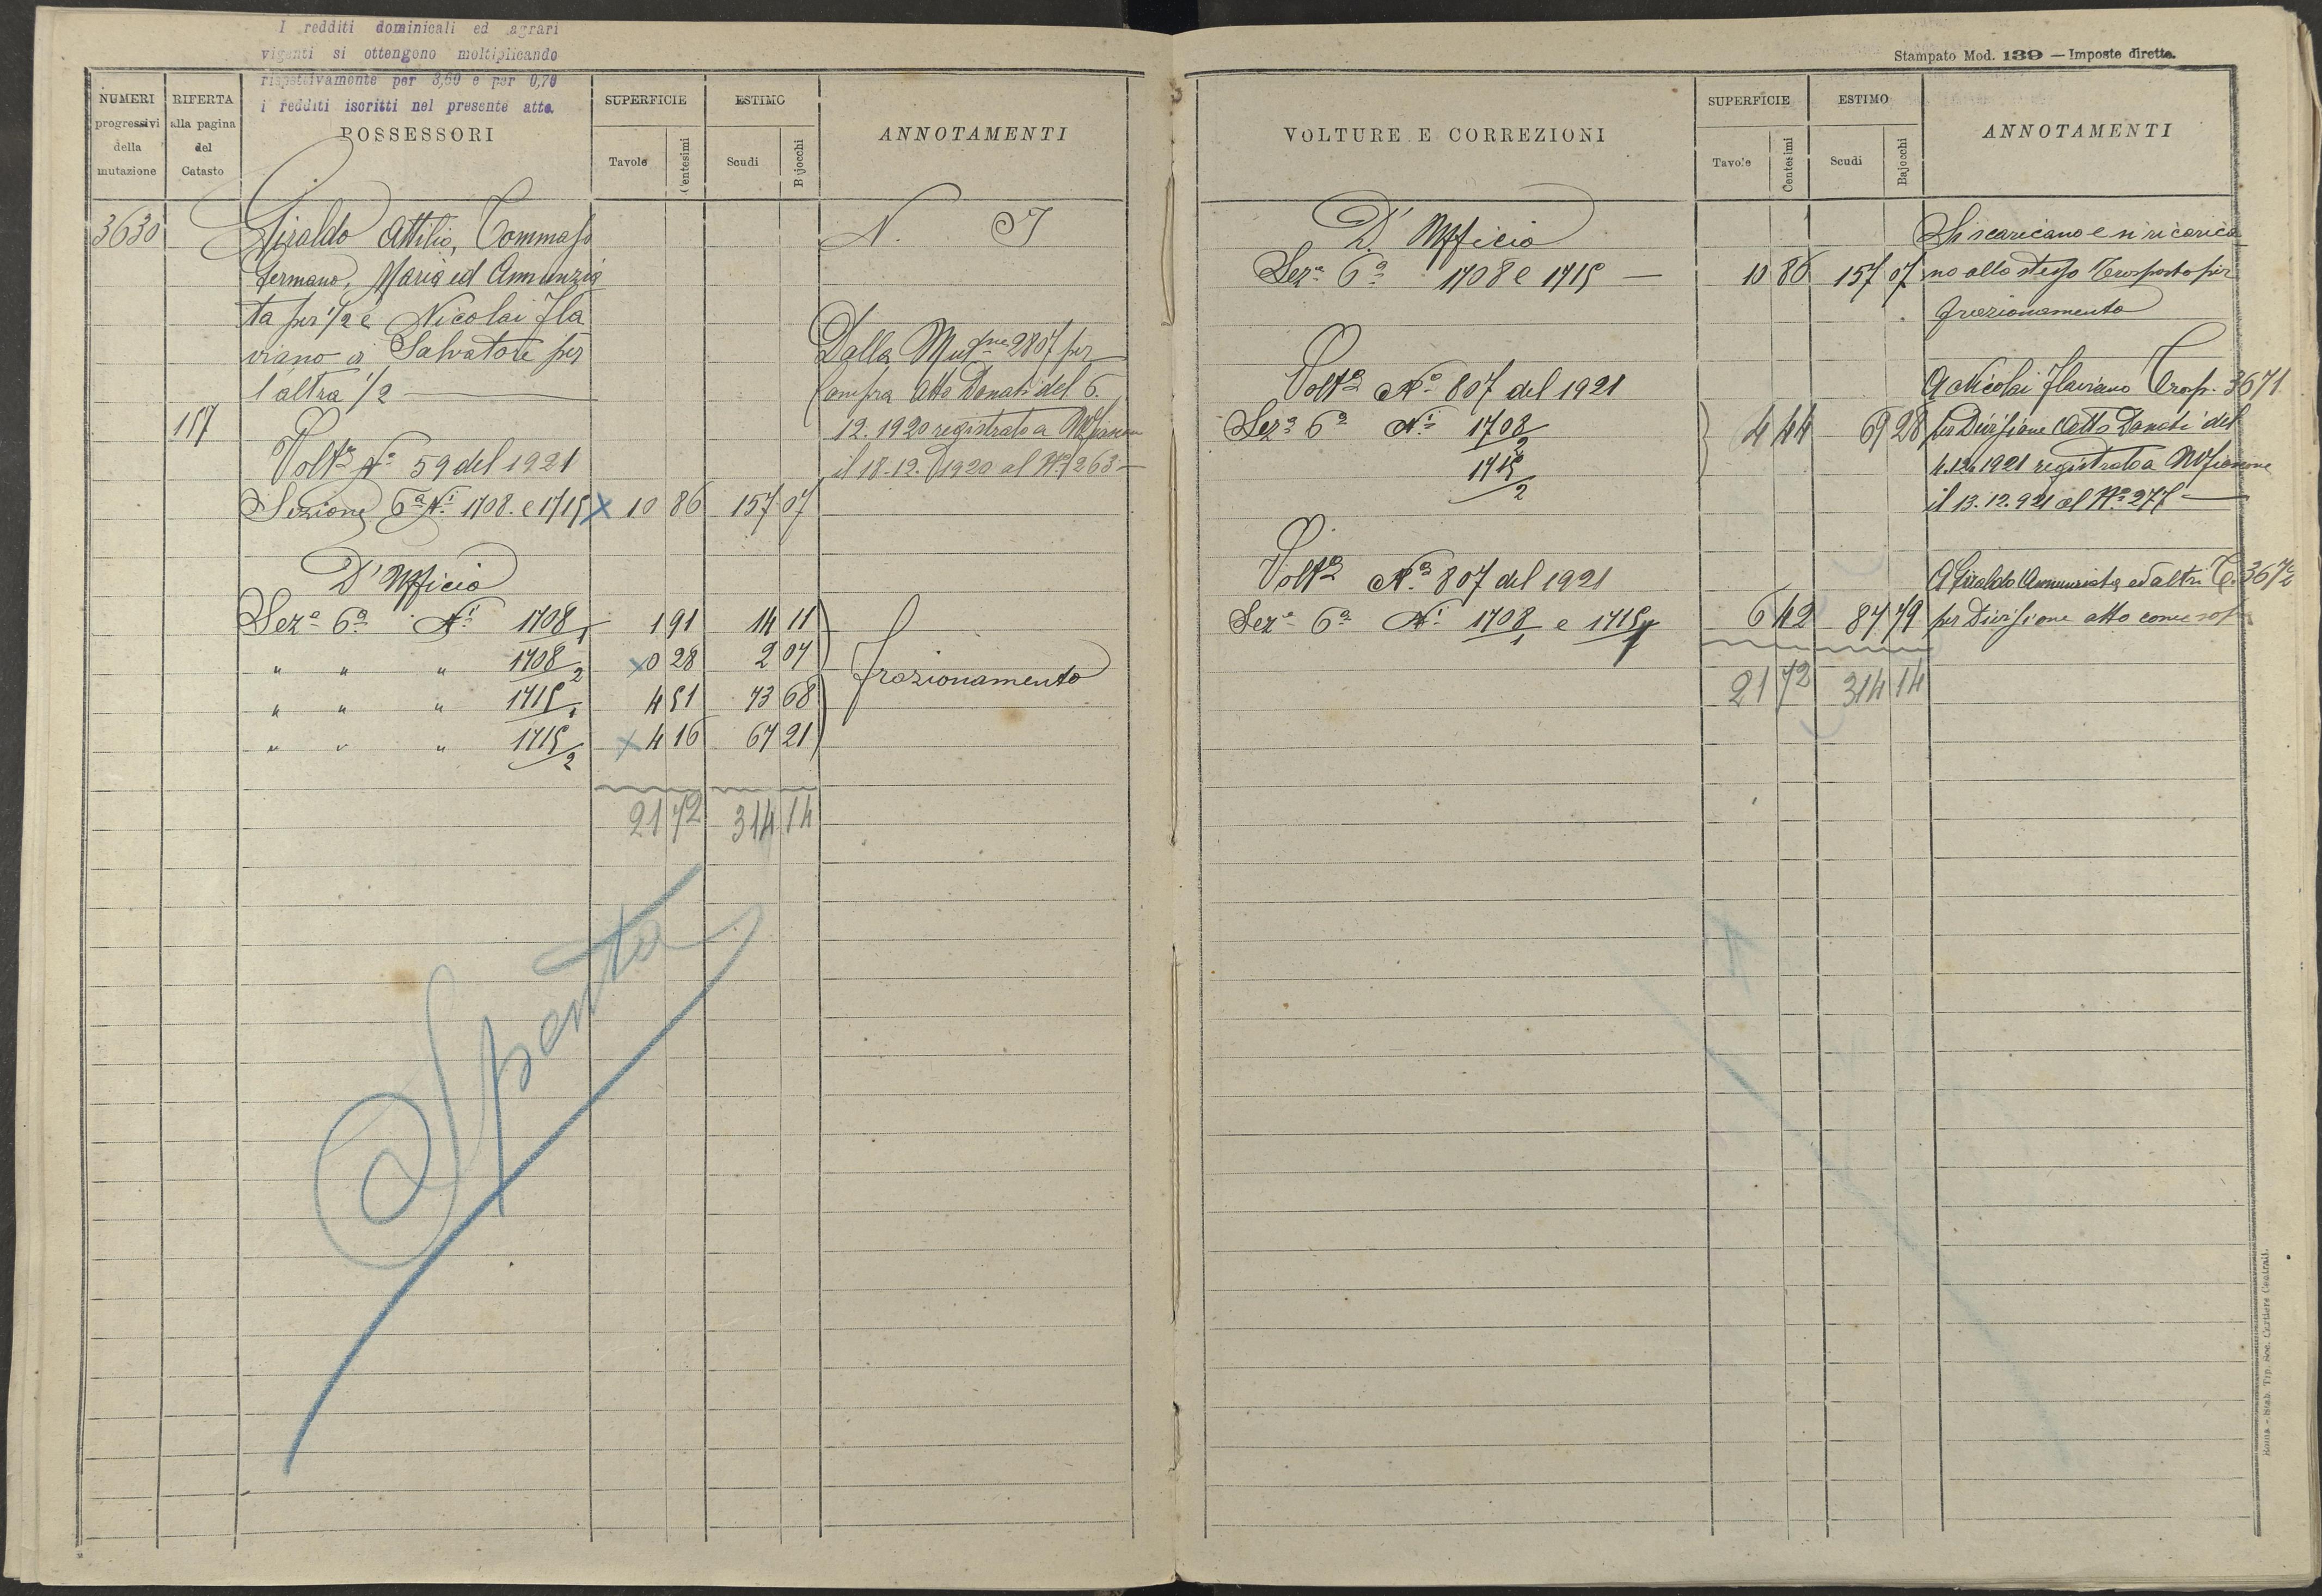 I redditi dominicali ed agrari
vigenti si ottengono moltiplicando
rispettivamente per 3,60 e per 0,70
i redditi iscritti nel presente atto.
NUMERI progressivi della mutazione
RIFERTA alla pagina del Catasto
POSSESSORI
SUPERFICIE
Tavole Centesimi
ESTIMO
Scudi Bajocchi
ANNOTAMENTI
3630 Giraldo Attilio, Tommaso
Germano, Maria ed Annunzia
ta per 1/2 e Nicolai Fla
viano di Salvatore per
l'altra 1/2
157
Volt.ª N.º 59 del 1921
Sezione 6ª N.i 1708. e 1715 x 10 86 157 07
D'Ufficio
Sez.e 6ª N.i 1708/1 1 91 14 11
" " " 1708/2 x 0 28 2 07
" " " 1715/1 4 51 73 68
" " " 1715/2 x 4 16 67 21
21 72 314 14
N. I
Dalla Mut.ne 2807 per
Compra Atto Donati del 6.
12. 1920 registrato a
il 18-12. 1920 al N.º 263
frazionamento
Spenta
Stampato Mod. 139 — Imposte dirette.
VOLTURE E CORREZIONI
SUPERFICIE
Tavole Centesimi
ESTIMO
Scudi Bajocchi
ANNOTAMENTI
D'Ufficio
Sez.e 6ª 1708 e 1715 — 10 86 157 07
Si scaricano e si ricarica
no allo stesso Trasporto per
frazionamento
Volt.ª N.º 807 del 1921
Sez.e 6ª N.i 1708/2
1715/2
4 44 69 28
A Nicolai Flaviano Trasp. 3671
per Divisione Atto Donati del
4.12.1921 registrato a
il 13.12.921 al N.º 277
Volt.ª N.º 807 del 1921
Sez.e 6ª N.i 1708/1 e 1715/1 6 42 87 79
A Giraldo Annunziata ed altri T. 3672
per Divisione atto come sop.
21 72 314 14
Roma - Stab. Tip. Soc. Cartiere Centrali.